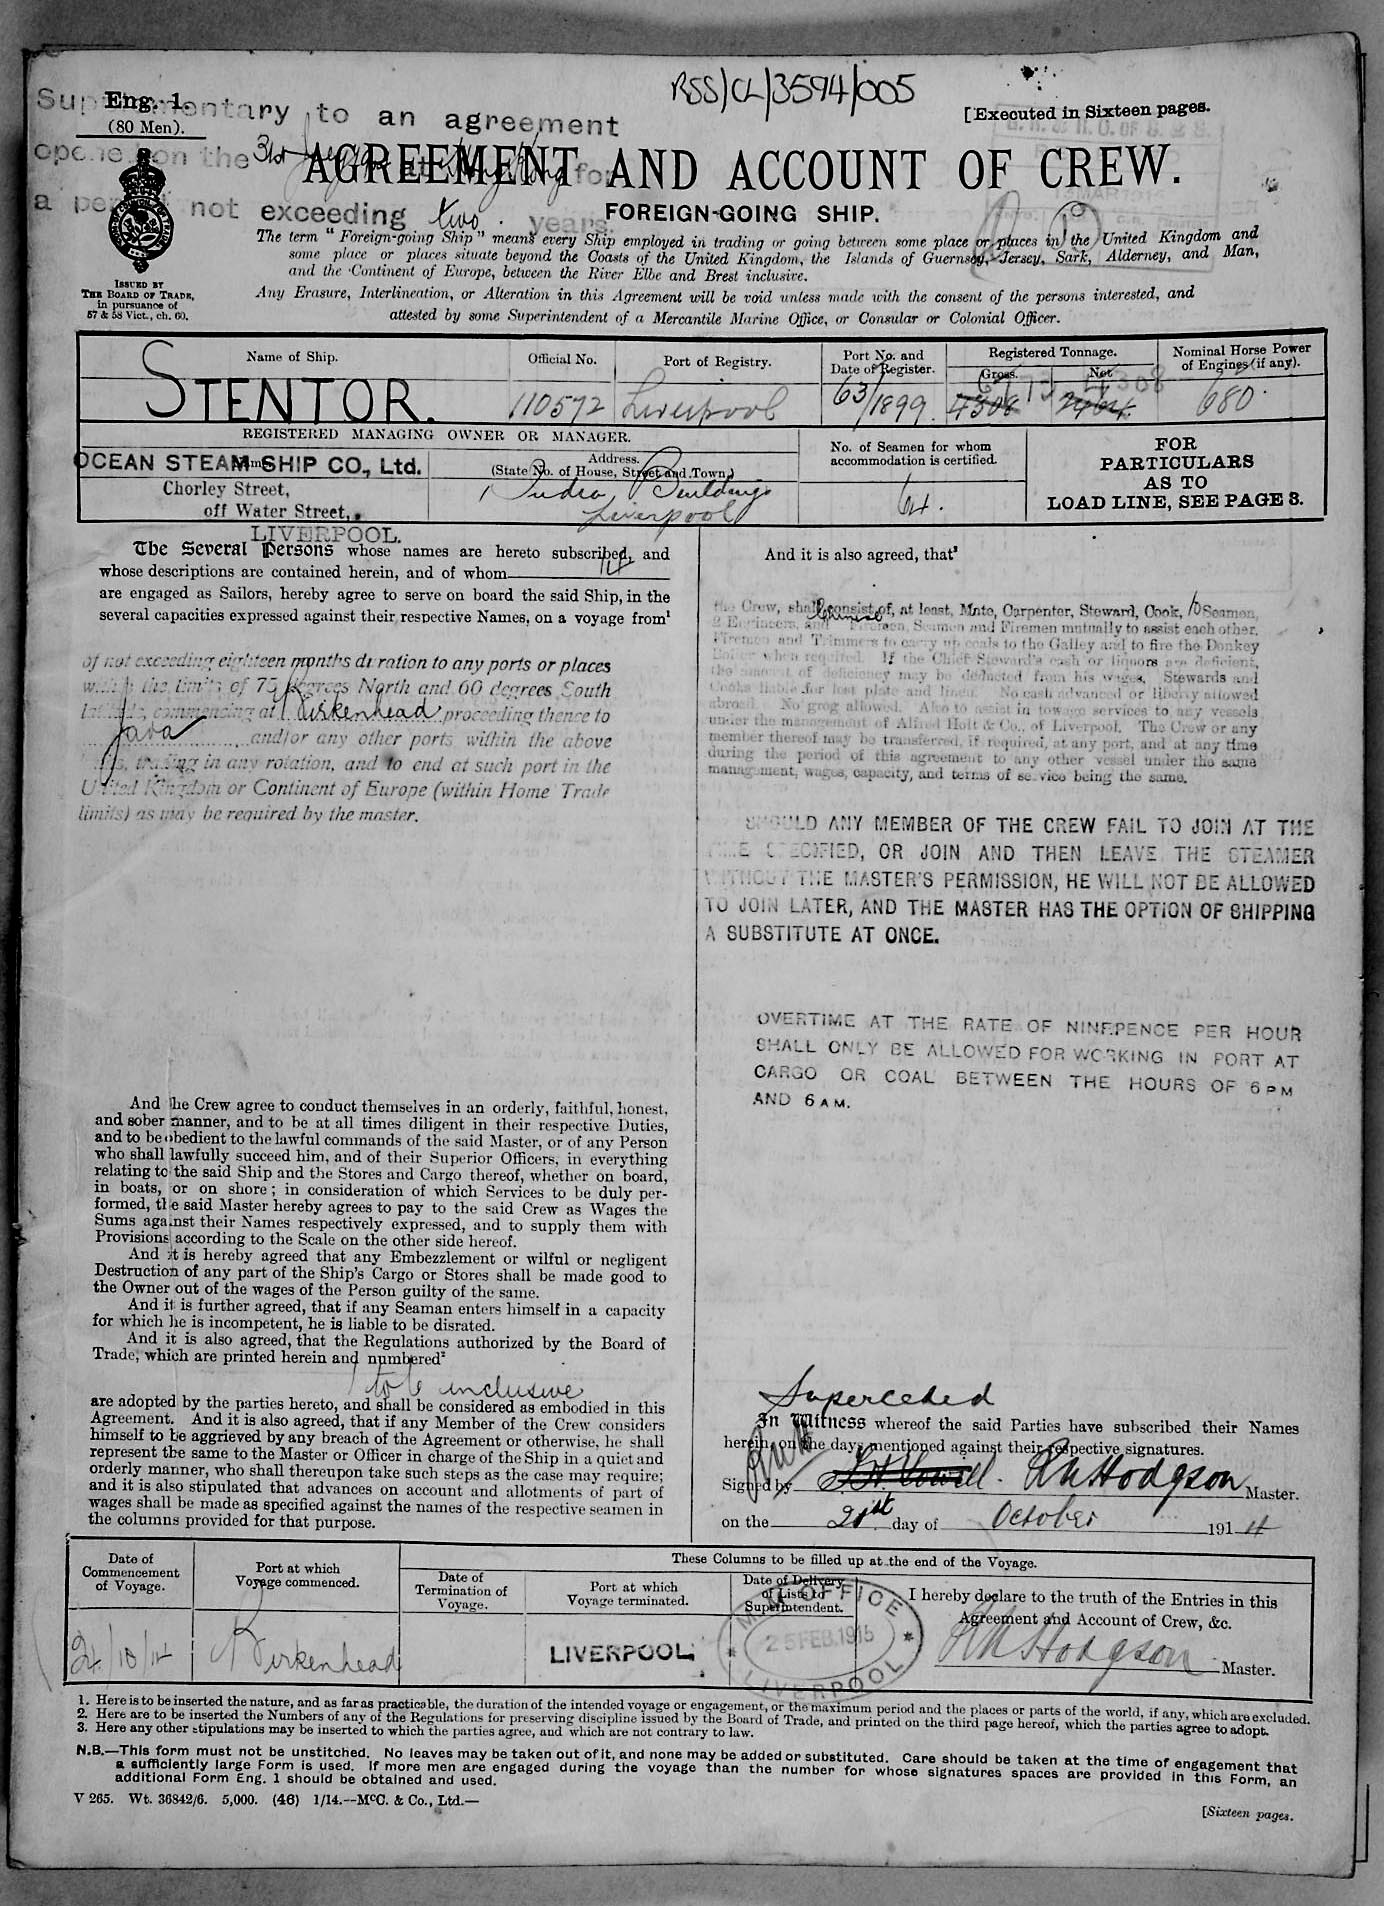 RSS/CL/3594/005
Eng. 1.
(80 Men).
[Executed in Sixteen pages.
Supplementary to an agreement
opened on the 31st at for
a period not exceeding two years.
AGREEMENT AND ACCOUNT OF CREW.
FOREIGN-GOING SHIP.
ISSUED BY
THE BOARD OF TRADE,
in pursuance of
57 & 58 Vict., ch. 60.
The term "Foreign-going Ship" means every Ship employed in trading or going between some place or places in the United Kingdom and
some place or places situate beyond the Coasts of the United Kingdom, the Islands of Guernsey, Jersey, Sark, Alderney, and Man,
and the Continent of Europe, between the River Elbe and Brest inclusive.
Any Erasure, Interlineation, or Alteration in this Agreement will be void unless made with the consent of the persons interested, and
attested by some Superintendent of a Mercantile Marine Office, or Consular or Colonial Officer.
Name of Ship.
Official No.
Port of Registry.
Port No. and
Date of Register.
Registered Tonnage.
Gross.
Net
Nominal Horse Power
of Engines (if any).
STENTOR.
110572
Liverpool
63/1899.
6773 4308
4308 2464
680.
REGISTERED MANAGING OWNER OR MANAGER.
OCEAN STEAM SHIP CO., Ltd.
Chorley Street,
off Water Street,
LIVERPOOL.
Address.
(State No. of House, Street and Town.)
1 India Buildings
Liverpool
No. of Seamen for whom
accommodation is certified.
64.
FOR
PARTICULARS
AS TO
LOAD LINE, SEE PAGE 3.
The Several Persons whose names are hereto subscribed, and
whose descriptions are contained herein, and of whom 14
are engaged as Sailors, hereby agree to serve on board the said Ship, in the
several capacities expressed against their respective Names, on a voyage from¹
of not exceeding eighteen months duration to any ports or places
within the limits of 75 degrees North and 60 degrees South
latitude, commencing at Birkenhead proceeding thence to
Java and/or any other ports within the above
limits, trading in any rotation, and to end at such port in the
United Kingdom or Continent of Europe (within Home Trade
limits) as may be required by the master.
And the Crew agree to conduct themselves in an orderly, faithful, honest,
and sober manner, and to be at all times diligent in their respective Duties,
and to be obedient to the lawful commands of the said Master, or of any Person
who shall lawfully succeed him, and of their Superior Officers, in everything
relating to the said Ship and the Stores and Cargo thereof, whether on board,
in boats, or on shore; in consideration of which Services to be duly per-
formed, the said Master hereby agrees to pay to the said Crew as Wages the
Sums against their Names respectively expressed, and to supply them with
Provisions according to the Scale on the other side hereof.
And it is hereby agreed that any Embezzlement or wilful or negligent
Destruction of any part of the Ship's Cargo or Stores shall be made good to
the Owner out of the wages of the Person guilty of the same.
And it is further agreed, that if any Seaman enters himself in a capacity
for which he is incompetent, he is liable to be disrated.
And it is also agreed, that the Regulations authorized by the Board of
Trade, which are printed herein and numbered²
1 to 6 inclusive
are adopted by the parties hereto, and shall be considered as embodied in this
Agreement. And it is also agreed, that if any Member of the Crew considers
himself to be aggrieved by any breach of the Agreement or otherwise, he shall
represent the same to the Master or Officer in charge of the Ship in a quiet and
orderly manner, who shall thereupon take such steps as the case may require;
and it is also stipulated that advances on account and allotments of part of
wages shall be made as specified against the names of the respective seamen in
the columns provided for that purpose.
And it is also agreed, that³
the Crew, shall consist of, at least, Mate, Carpenter, Steward, Cook, 10 Seamen,
2 Engineers, and Chinese Firemen, Seamen and Firemen mutually to assist each other.
Firemen and Trimmers to carry up coals to the Galley and to fire the Donkey
Boiler when required. If the Chief Steward's cash or liquors are deficient,
the amount of deficiency may be deducted from his wages. Stewards and
Cooks liable for lost plate and linen. No cash advanced or liberty allowed
abroad. No grog allowed. Also to assist in towage services to any vessels
under the management of Alfred Holt & Co., of Liverpool. The Crew or any
member thereof may be transferred, if required, at any port, and at any time
during the period of this agreement to any other vessel under the same
management, wages, capacity, and terms of service being the same.
SHOULD ANY MEMBER OF THE CREW FAIL TO JOIN AT THE
TIME SPECIFIED, OR JOIN AND THEN LEAVE THE STEAMER
WITHOUT THE MASTER'S PERMISSION, HE WILL NOT BE ALLOWED
TO JOIN LATER, AND THE MASTER HAS THE OPTION OF SHIPPING
A SUBSTITUTE AT ONCE.
OVERTIME AT THE RATE OF NINEPENCE PER HOUR
SHALL ONLY BE ALLOWED FOR WORKING IN PORT AT
CARGO OR COAL BETWEEN THE HOURS OF 6 PM
AND 6 AM.
Superceded
In Witness whereof the said Parties have subscribed their Names
herein, on the days mentioned against their respective signatures.
Signed by R H Hodgson Master.
on the 21st day of October 1914
Date of
Commencement
of Voyage.
Port at which
Voyage commenced.
These Columns to be filled up at the end of the Voyage.
Date of
Termination of
Voyage.
Port at which
Voyage terminated.
Date of Delivery
of Lists to
Superintendent.
I hereby declare to the truth of the Entries in this
Agreement and Account of Crew, &c.
R H Hodgson Master.
24/10/14
Birkenhead
LIVERPOOL
M.M. OFFICE
25 FEB.1915
LIVERPOOL
1. Here is to be inserted the nature, and as far as practicable, the duration of the intended voyage or engagement, or the maximum period and the places or parts of the world, if any, which are excluded.
2. Here are to be inserted the Numbers of any of the Regulations for preserving discipline issued by the Board of Trade, and printed on the third page hereof, which the parties agree to adopt.
3. Here any other stipulations may be inserted to which the parties agree, and which are not contrary to law.
N.B.—This form must not be unstitched. No leaves may be taken out of it, and none may be added or substituted. Care should be taken at the time of engagement that
a sufficiently large Form is used. If more men are engaged during the voyage than the number for whose signatures spaces are provided in this Form, an
additional Form Eng. 1 should be obtained and used.
V 265. Wt. 36842/6. 5,000. (46) 1/14.--McC. & Co., Ltd.—
[Sixteen pages.